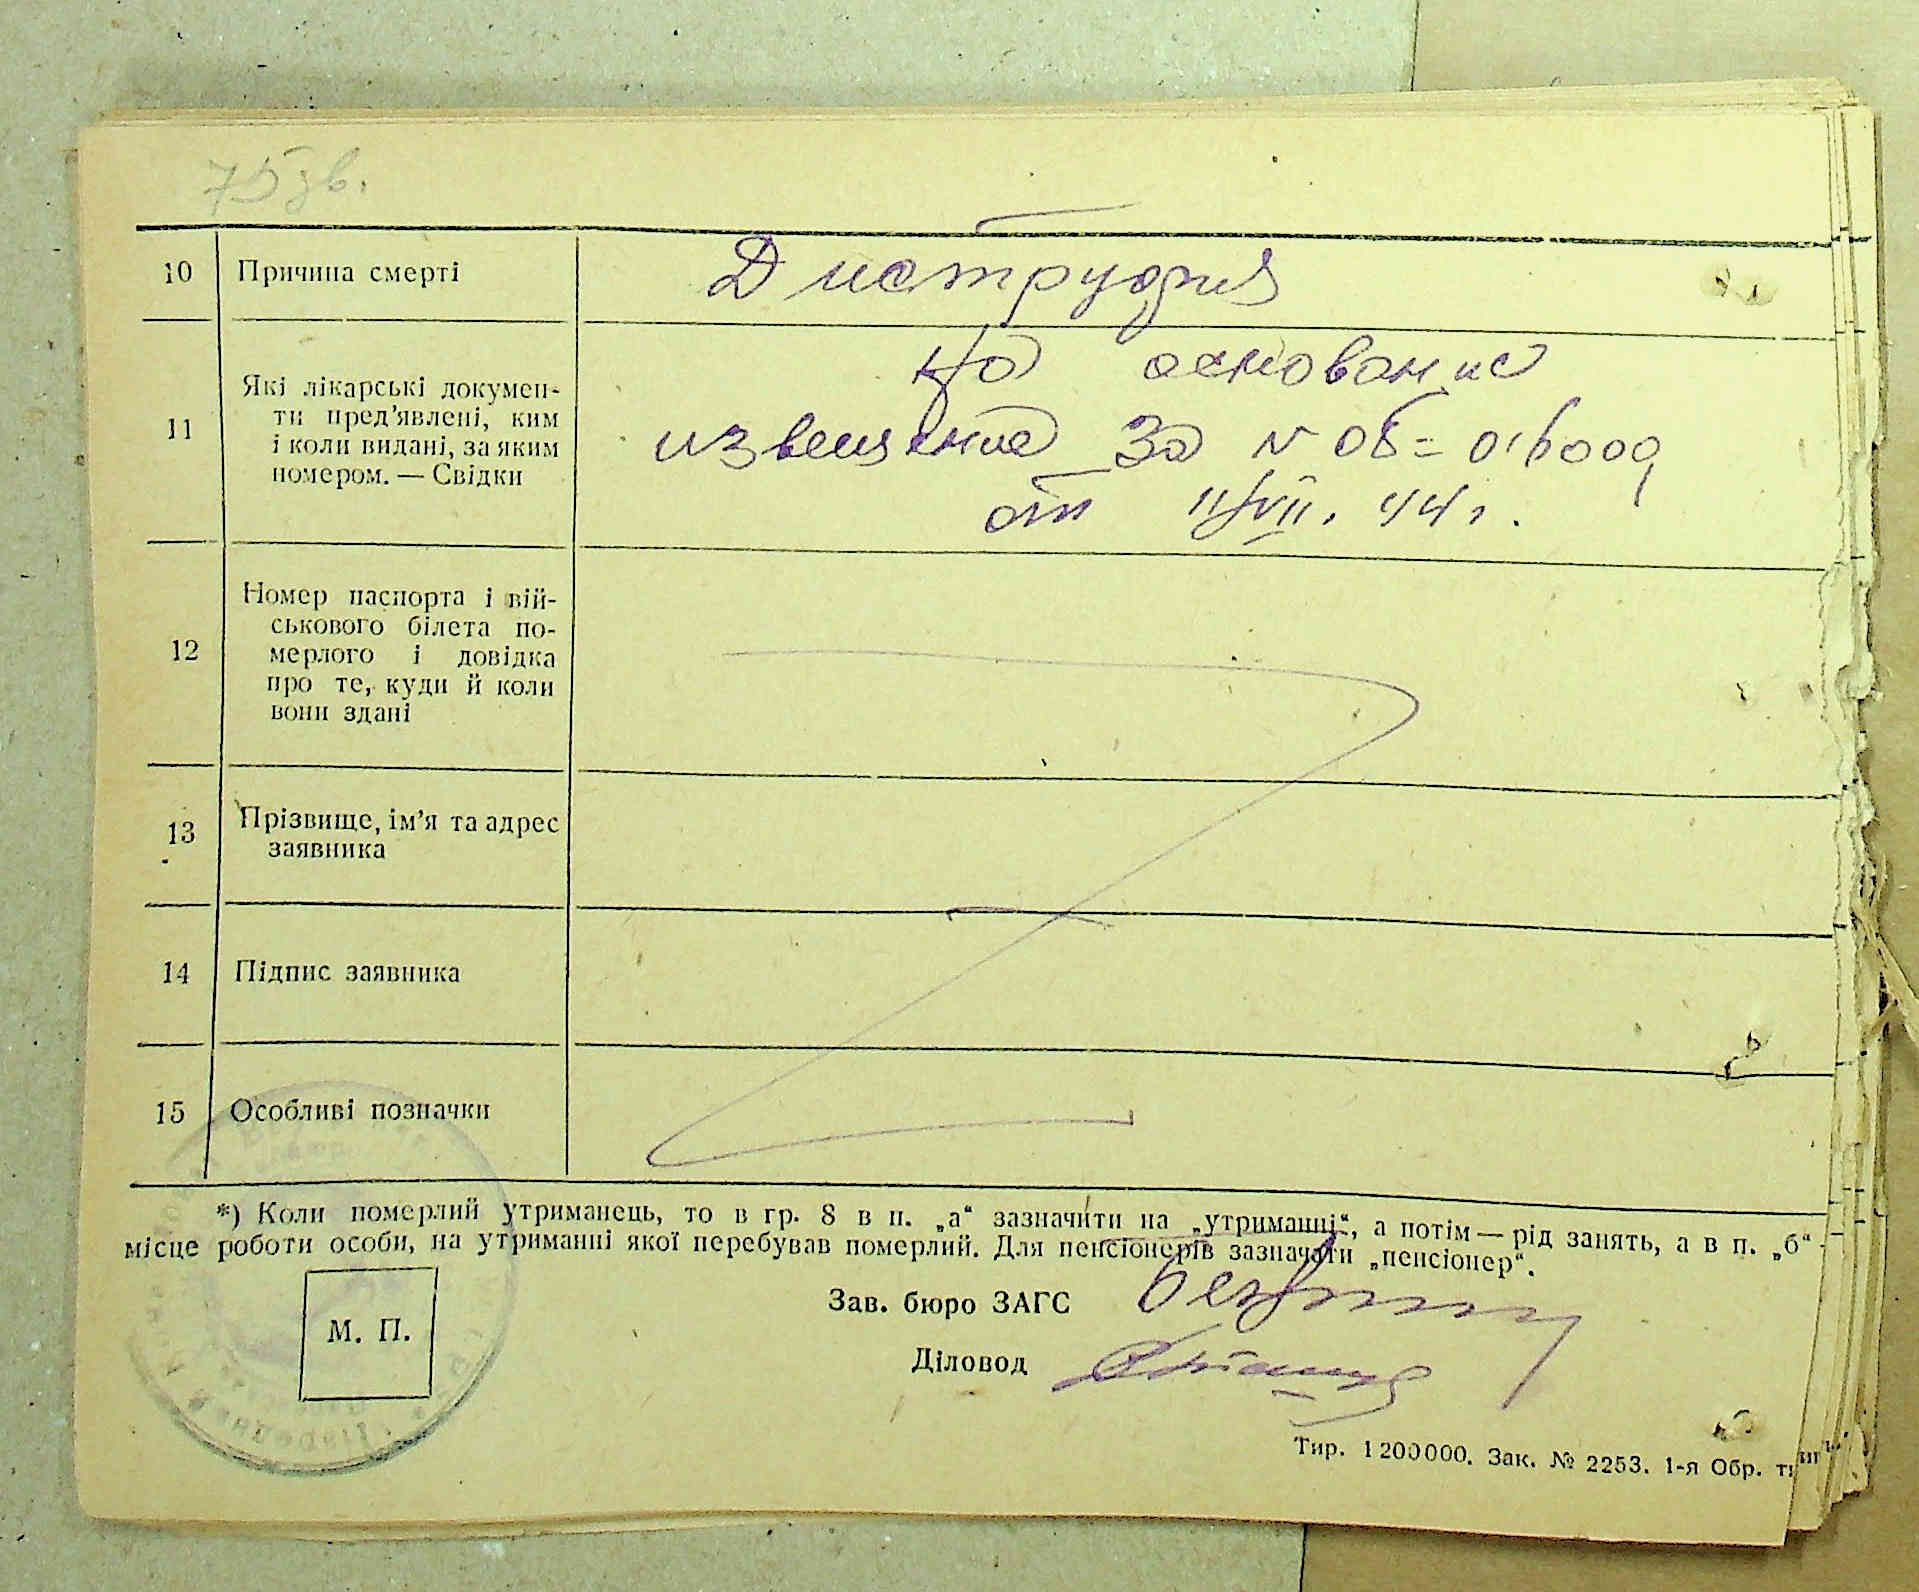 75 зв.
10 Причина смерті Диструфия
11 Які лікарські докумен-
ти пред'явлені, ким
і коли видані, за яким
номером. — Свідки
на основание
извещение за №
от 11/VII. 44 г.
12 Номер паспорта і вій-
ськового білета по-
мерлого і довідка
про те, куди й коли
вони здані
13 Прізвище, ім'я та адрес
заявника
14 Підпис заявника
15 Особливі позначки
*) Коли померлий утриманець, то в гр. 8 в п. „а“ зазначити на „утриманні“, а потім — рід занять, а в п. „б“ -
місце роботи особи, на утриманні якої перебував померлий. Для пенсіонерів зазначати „пенсіонер“.
Зав. бюро ЗАГС
М. П.
Діловод
Тир. 1200000. Зак. № 2253. 1-я Обр. ти